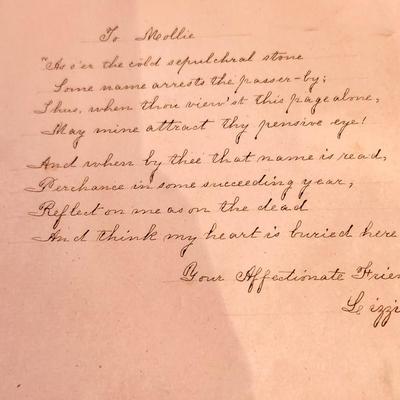 To Mollie
"As o'er the cold sepulchral stone
Some name arrests the passer-by;
Thus, when thou view'st this page alone,
May mine attract thy pensive eye!
And when by thee that name is read,
Perchance in some succeeding year,
Reflect on me as on the dead
And think my heart is buried here
Your Affectionate Frien
Lizzi